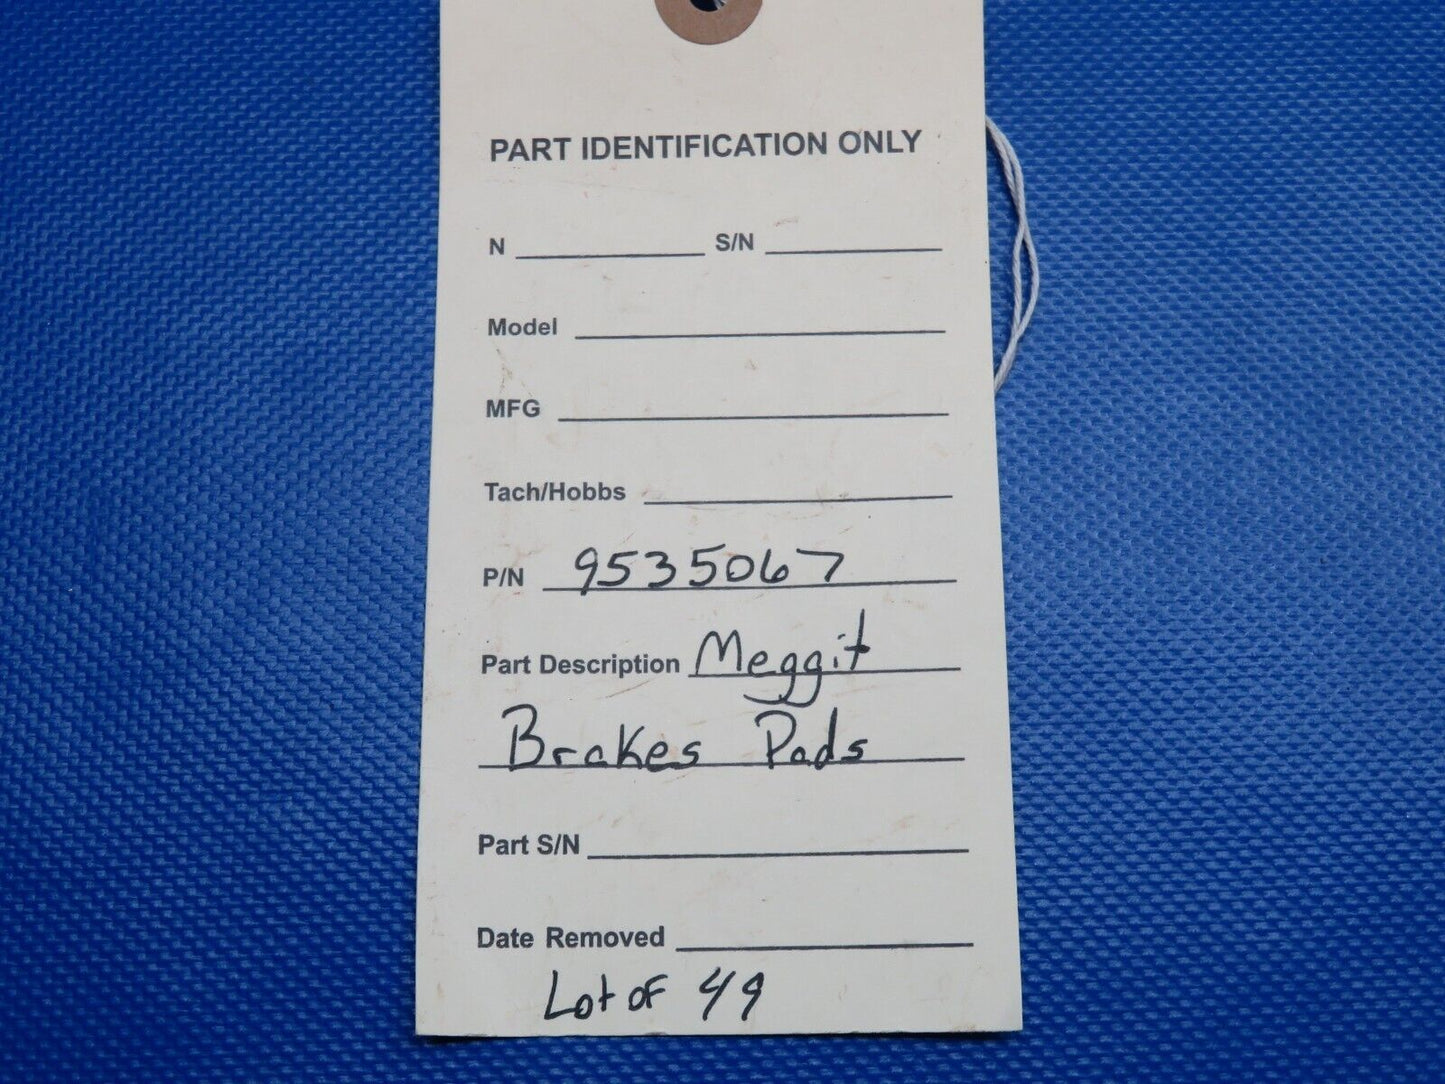 PART IDENTIFICATION ONLY
N S/N
Model
MFG
Tach/Hobbs
P/N 9535067
Part Description Meggit
Brakes Pads
Part S/N
Date Removed
Lot of 49